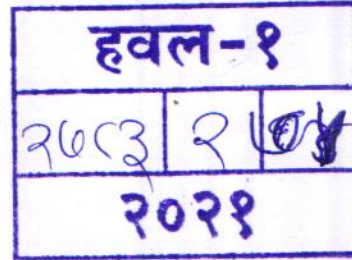 हवल-१
२७८३ २
२०२१